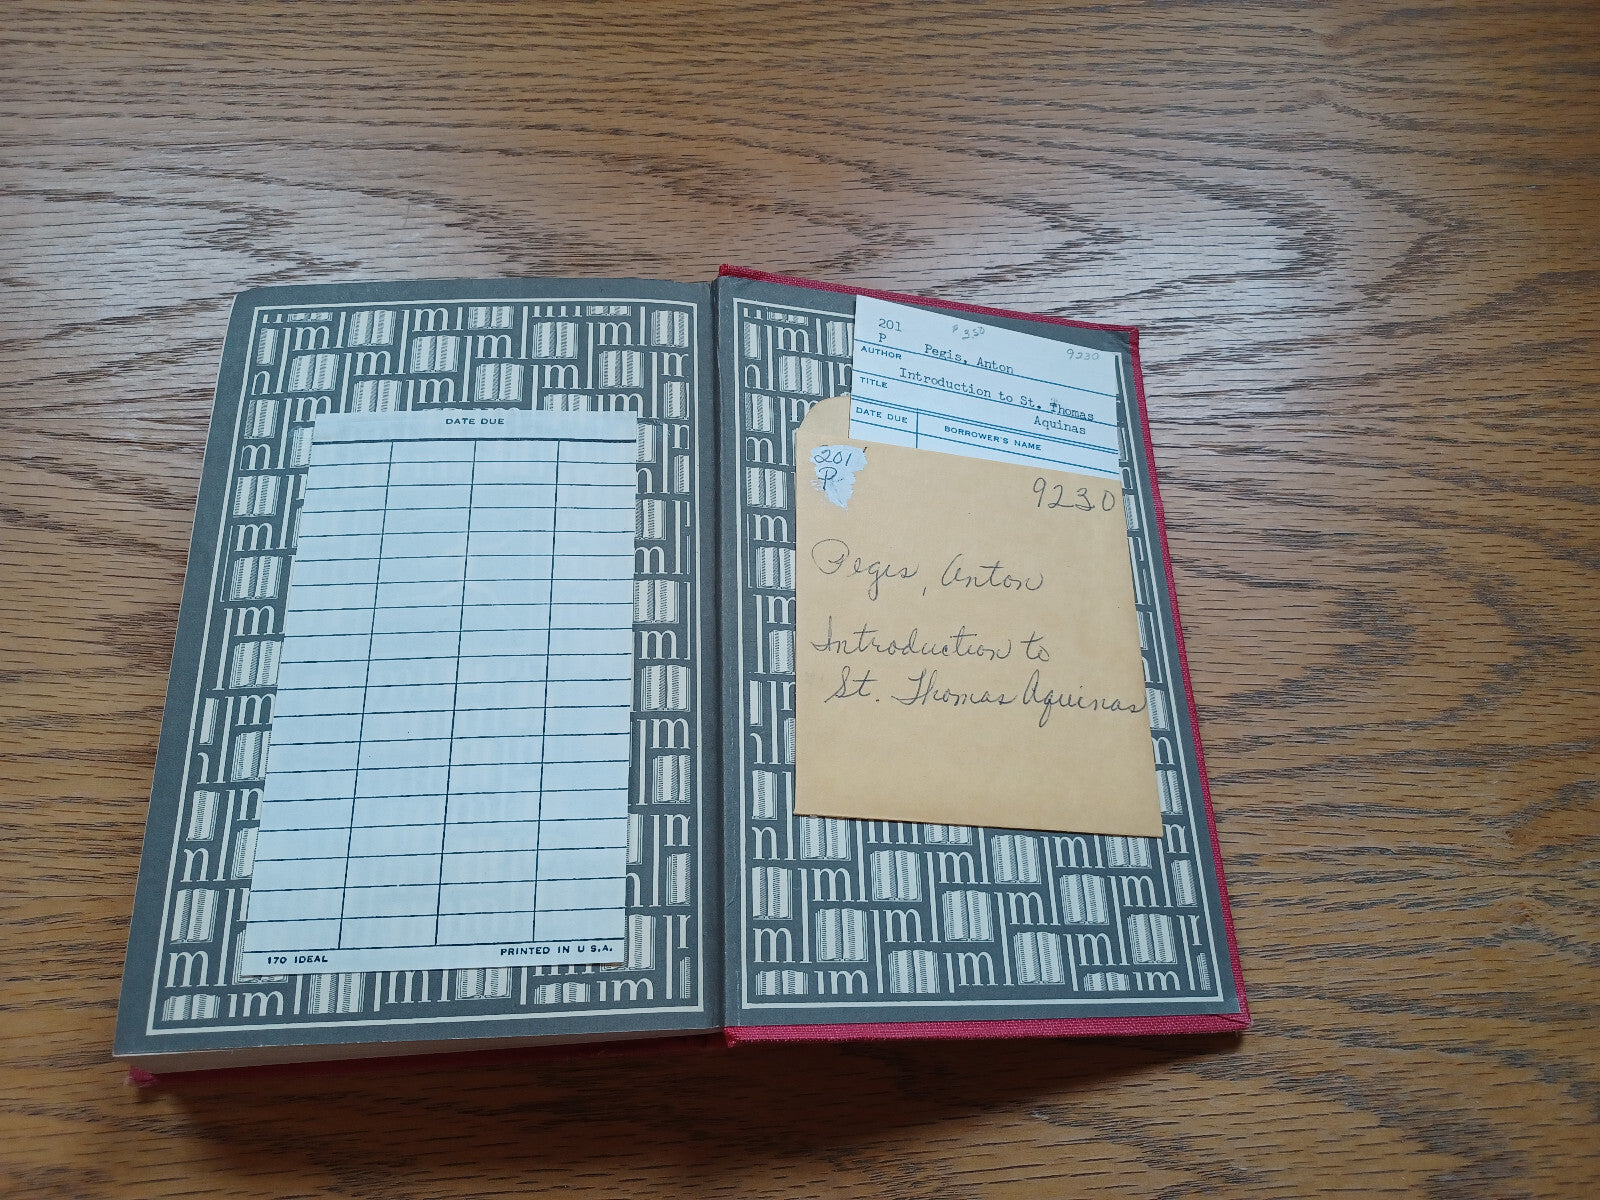 DATE DUE
170 IDEAL
PRINTED IN U.S.A.
201
P
9230
Pegis, Anton
AUTHOR
Introduction to St. Thomas
TITLE
Aquinas
DATE DUE
BORROWER'S NAME
201
P
9230
Pegis, Anton
Introduction to
St. Thomas Aquinas